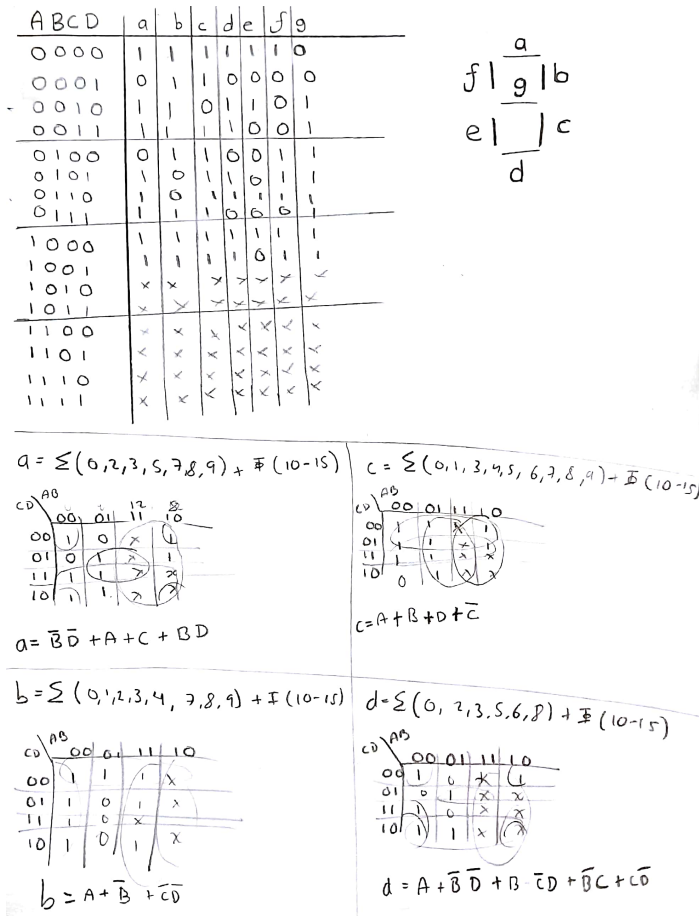 A B C D a b c d e f g
0 0 0 0 1 1 1 1 1 1 0
0 0 0 1 0 1 1 0 0 0 0
0 0 1 0 1 1 0 1 1 0 1
0 0 1 1 1 1 1 1 0 0 1
0 1 0 0 0 1 1 0 0 1 1
0 1 0 1 1 0 1 1 0 1 1
0 1 1 0 1 0 1 1 1 1 1
0 1 1 1 1 1 1 0 0 0 1
1 0 0 0 1 1 1 1 1 1 1
1 0 0 1 1 1 1 1 0 1 1
1 0 1 0 x x x x x x x
1 0 1 1 x x x x x x x
1 1 0 0 x x x x x x x
1 1 0 1 x x x x x x x
1 1 1 0 x x x x x x x
1 1 1 1 x x x x x x x
a
f g b
e c
d
a = Σ(0,2,3,5,7,8,9) + Φ(10-15)
CD AB
12 8
00 01 11 10
00 1 0 x 1
01 0 1 x 1
11 1 1 x x
10 1 1 x x
a = B̄D̄ + A + C + BD
c = Σ(0,1,3,4,5,6,7,8,9) + Φ(10-15)
CD AB
00 01 11 10
00 1 1 x 1
01 1 1 x 1
11 1 1 x x
10 0 1 x x
c = A + B + D + C̄
b = Σ(0,1,2,3,4,7,8,9) + Φ(10-15)
CD AB
00 01 11 10
00 1 1 1 x
01 1 0 1 x
11 1 0 x
10 1 0 1 x
b = A + B̄ + C̄D̄
d = Σ(0,2,3,5,6,8) + Φ(10-15)
CD AB
00 01 11 10
00 1 0 x 1
01 0 1 x x
11 1 0 x x
10 1 1 x x
d = A + B̄D̄ + B·C̄D + B̄C + CD̄